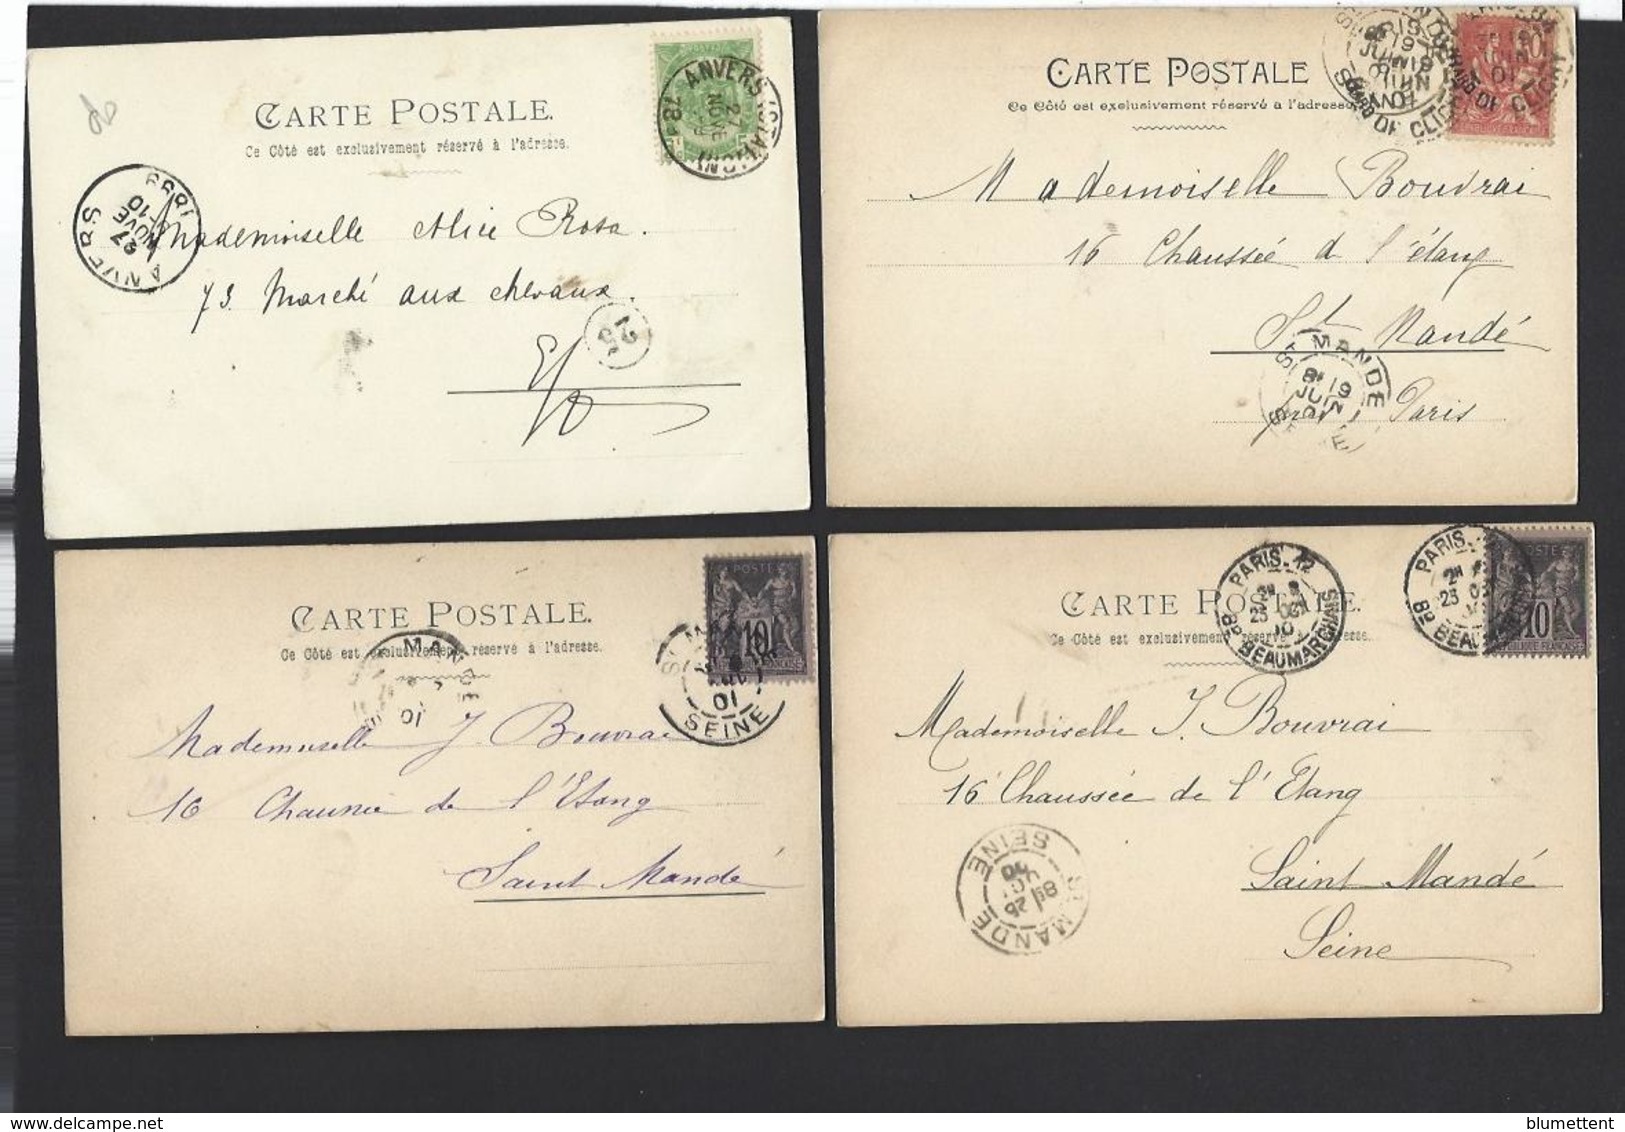 CARTE POSTALE.
Ce Côté est exclusivement réservé à l'adresse.
ANVERS (STATION)
27
NOVE
ANVERS
27
NOVE
10
1899
Mademoiselle Alice Rosa.
73 Marché aux chevaux.
E/V
CARTE POSTALE
Ce Côté est exclusivement réservé à l'adresse
10
Mademoiselle Bouvrai
16 Chaussée d l'étang
St Mandé
Paris
ST MANDE
19
JUIN
CARTE POSTALE.
Ce Côté est exclusivement réservé à l'adresse.
POSTE
10
01
SEINE
MANDE
01
Mademoiselle J. Bouvrai
16 Chaussée de l'Etang
Saint Mandé
CARTE POSTALE.
Ce Côté est exclusivement réservé à l'adresse.
PARIS. 12
25 OCT
Bd BEAUMARCHAIS
PARIS.
25
Bd BEAUMARCHAIS
10
REPUBLIQUE FRANÇAISE
Mademoiselle J. Bouvrai
16 Chaussée de l'Etang
Saint Mandé
Seine
ST MANDE
26
OCT
SEINE
blumettent